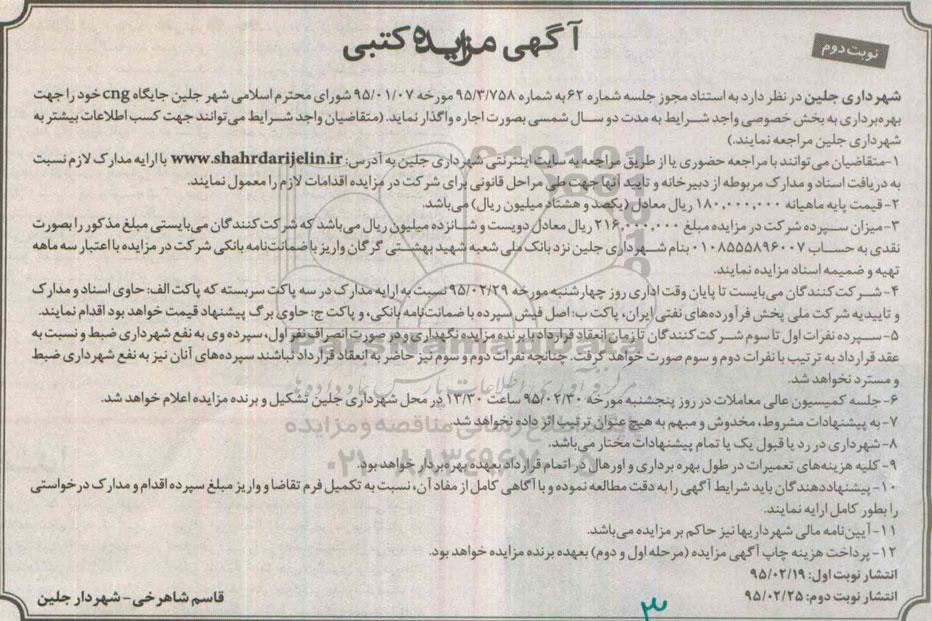 آگهی مزایده کتبی
نوبت دوم
شهرداری جلین در نظر دارد به استناد مجوز جلسه شماره ۶۲ به شماره ۹۵/۳/۷۵۸ مورخه ۹۵/۰۱/۰۷ شورای محترم اسلامی شهر جلین جایگاه cng خود را جهت
بهره‌برداری به بخش خصوصی واجد شرایط به مدت دو سال شمسی بصورت اجاره واگذار نماید. (متقاضیان واجد شرایط می‌توانند جهت کسب اطلاعات بیشتر به
شهرداری جلین مراجعه نمایند.)
۱-متقاضیان می‌توانند با مراجعه حضوری یا از طریق مراجعه به سایت اینترنتی شهرداری جلین به آدرس: www.shahrdarijelin.ir با ارایه مدارک لازم نسبت
به دریافت اسناد و مدارک مربوطه از دبیرخانه و تایید آنها جهت طی مراحل قانونی برای شرکت در مزایده اقدامات لازم را معمول نمایند.
۲-قیمت پایه ماهیانه ۱۸۰,۰۰۰,۰۰۰ ریال معادل (یکصد و هشتاد میلیون ریال) می‌باشد.
۳-میزان سپرده شرکت در مزایده مبلغ ۲۱۶,۰۰۰,۰۰۰ ریال معادل دویست و شانزده میلیون ریال می‌باشد که شرکت کنندگان می‌بایستی مبلغ مذکور را بصورت
نقدی به حساب ۰۱۰۸۵۵۵۸۹۶۰۰۷ بنام شهرداری جلین نزد بانک ملی شعبه شهید بهشتی گرگان واریز یا ضمانت‌نامه بانکی شرکت در مزایده با اعتبار سه ماهه
تهیه و ضمیمه اسناد مزایده نمایند.
۴-شرکت کنندگان می‌بایست تا پایان وقت اداری روز چهارشنبه مورخه ۹۵/۰۲/۲۹ نسبت به ارایه مدارک در سه پاکت سربسته که پاکت الف: حاوی اسناد و مدارک
و تاییدیه شرکت ملی پخش فرآورده‌های نفتی ایران، پاکت ب: اصل فیش سپرده یا ضمانت‌نامه بانکی، و پاکت ج: حاوی برگ پیشنهاد قیمت خواهد بود اقدام نمایند.
۵-سپرده نفرات اول تا سوم شرکت کنندگان تا زمان انعقاد قرارداد با برنده مزایده نگهداری و در صورت انصراف نفر اول، سپرده وی به نفع شهرداری ضبط و نسبت به
عقد قرارداد به ترتیب با نفرات دوم و سوم صورت خواهد گرفت. چنانچه نفرات دوم و سوم نیز حاضر به انعقاد قرارداد نباشند سپرده‌های آنان نیز به نفع شهرداری ضبط
و مسترد نخواهد شد.
۶-جلسه کمیسیون عالی معاملات در روز پنجشنبه مورخه ۹۵/۰۲/۳۰ ساعت ۱۳/۳۰ در محل شهرداری جلین تشکیل و برنده مزایده اعلام خواهد شد.
۷-به پیشنهادات مشروط، مخدوش و مبهم به هیچ عنوان ترتیب اثر داده نخواهد شد.
۸-شهرداری در رد یا قبول یک یا تمام پیشنهادات مختار می‌باشد.
۹-کلیه هزینه‌های تعمیرات در طول بهره برداری و اورهال در اتمام قرارداد بعهده بهره‌بردار خواهد بود.
۱۰-پیشنهاددهندگان باید شرایط آگهی را به دقت مطالعه نموده و با آگاهی کامل از مفاد آن، نسبت به تکمیل فرم تقاضا و واریز مبلغ سپرده اقدام و مدارک درخواستی
را بطور کامل ارایه نمایند.
۱۱-آیین‌نامه مالی شهرداریها نیز حاکم بر مزایده می‌باشد.
۱۲-پرداخت هزینه چاپ آگهی مزایده (مرحله اول و دوم) بعهده برنده مزایده خواهد بود.
انتشار نوبت اول: ۹۵/۰۲/۱۹
انتشار نوبت دوم: ۹۵/۰۲/۲۵
قاسم شاهرخی-شهردار جلین
۳